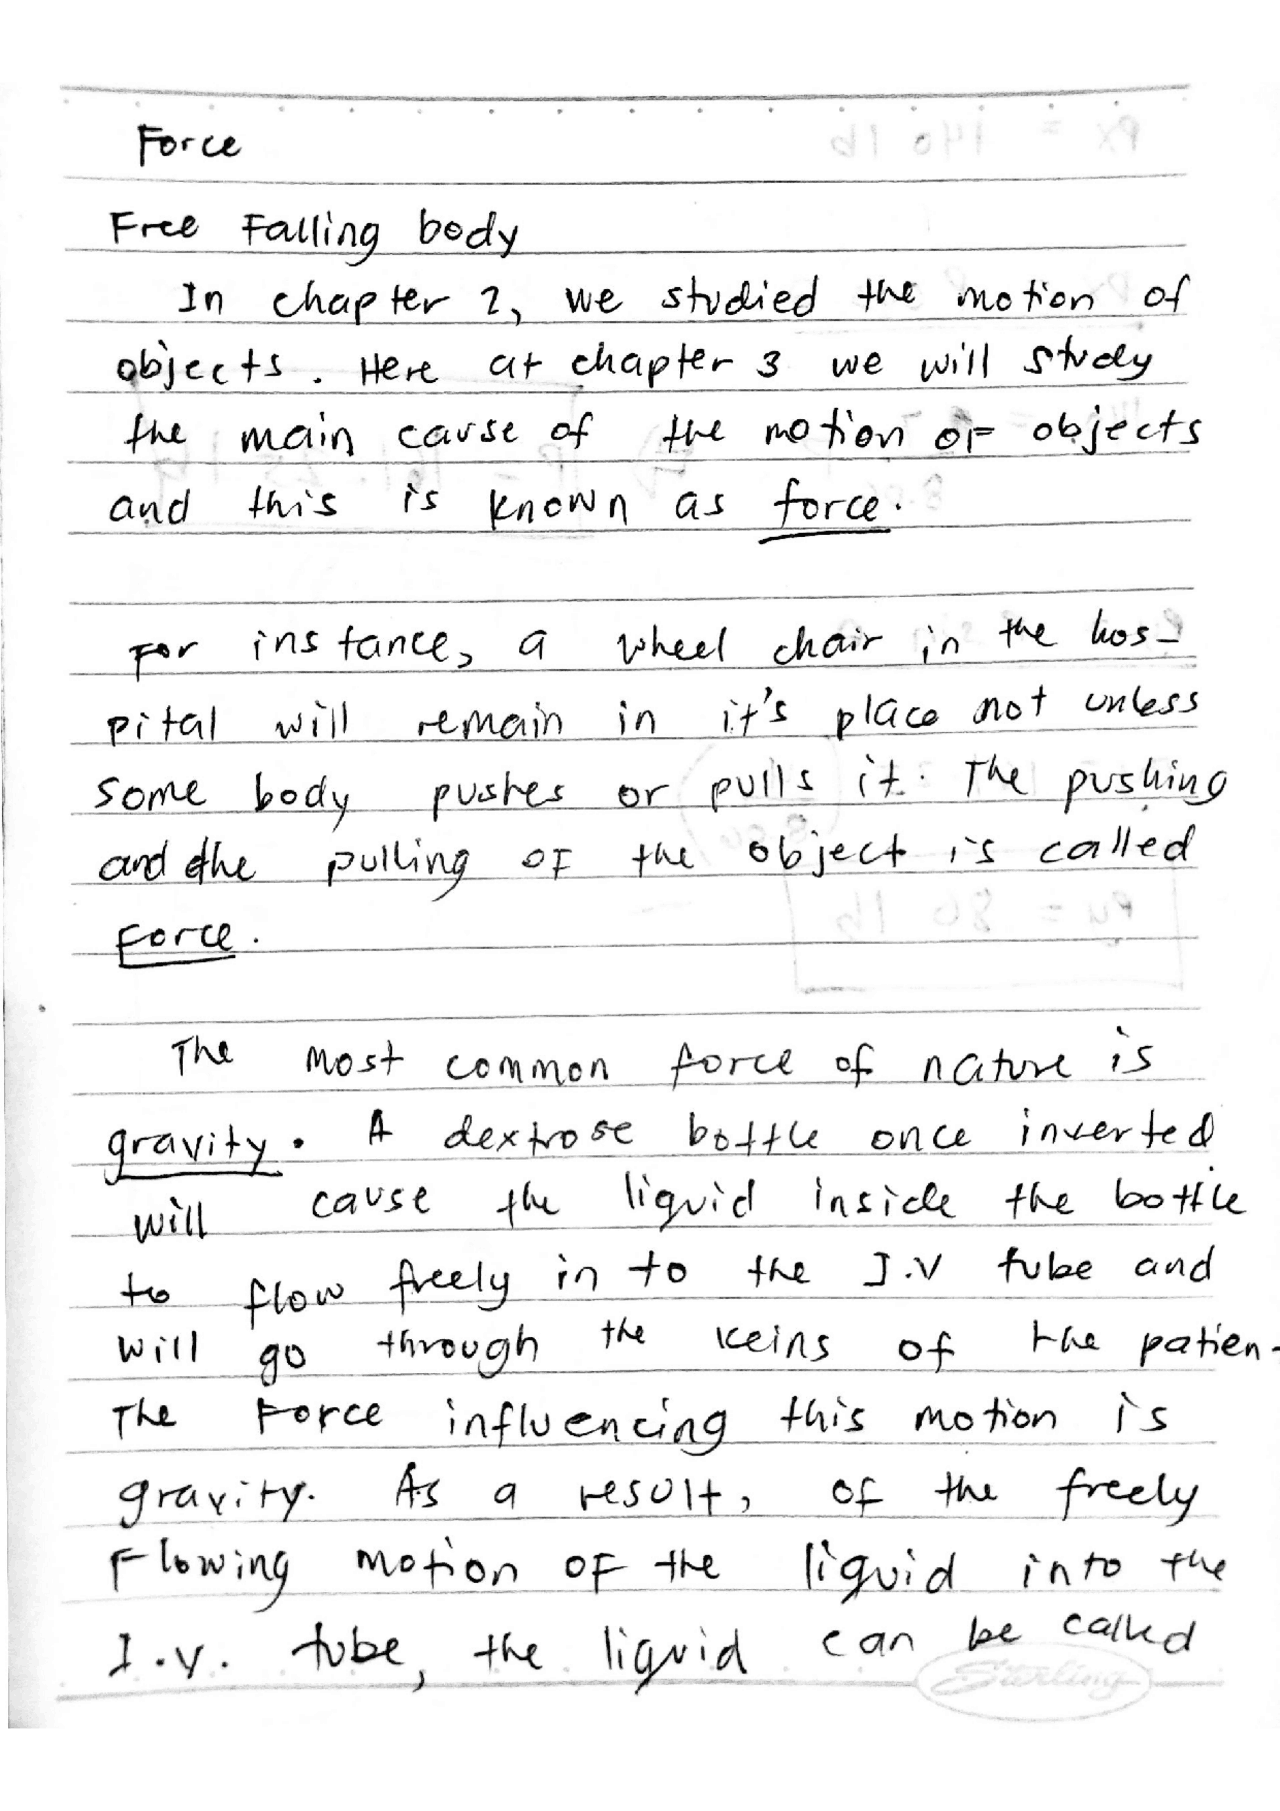 Force
Free Falling body
In chapter 2, we studied the motion of
objects. Here at chapter 3 we will study
the main cause of the motion of objects
and this is known as force.
For instance, a wheel chair in the hos-
pital will remain in it's place not unless
some body pushes or pulls it. The pushing
and the pulling of the object is called
Force.
The most common force of nature is
gravity. A dextrose bottle once inverted
will cause the liquid inside the bottle
to flow freely in to the I.V tube and
will go through the veins of the patien
The Force influencing this motion is
gravity. As a result, of the freely
Flowing motion of the liquid into the
I.V. tube, the liquid can be called
Sterling